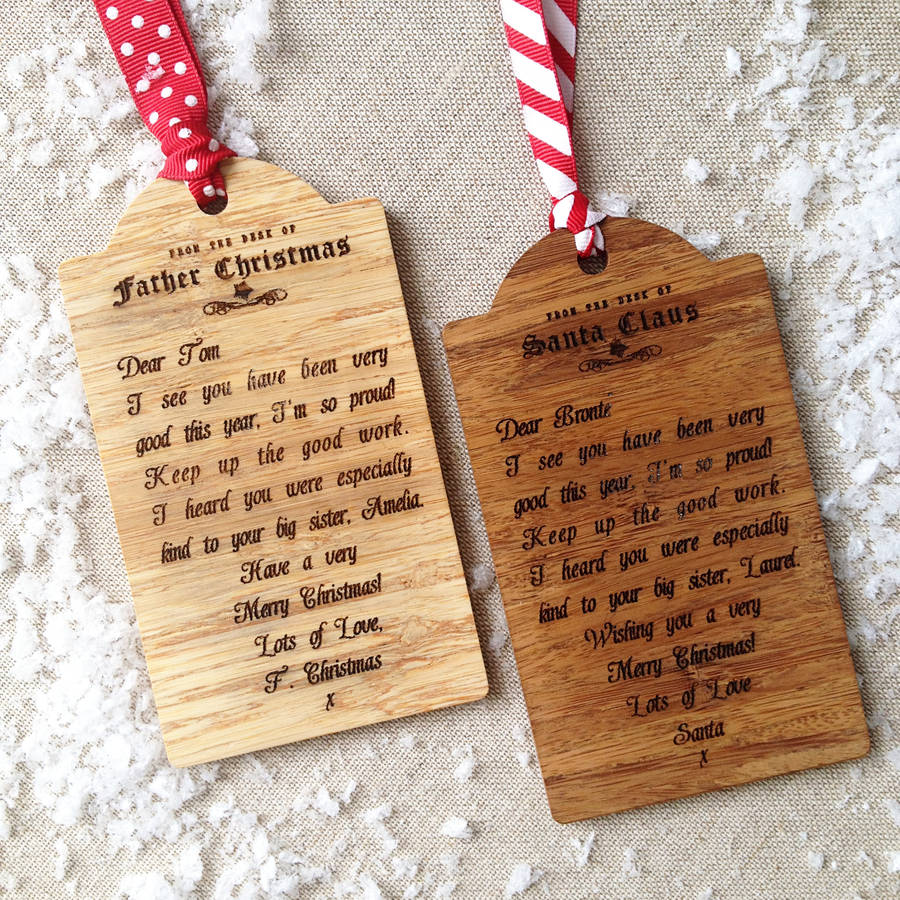 FROM THE DESK OF
Father Christmas
Dear Tom
I see you have been very
good this year, I'm so proud!
Keep up the good work.
I heard you were especially
kind to your big sister, Amelia.
Have a very
Merry Christmas!
Lots of Love,
F. Christmas
x
FROM THE DESK OF
Santa Claus
Dear Bronté
I see you have been very
good this year, I'm so proud!
Keep up the good work.
I heard you were especially
kind to your big sister, Laurel.
Wishing you a very
Merry Christmas!
Lots of Love
Santa
x